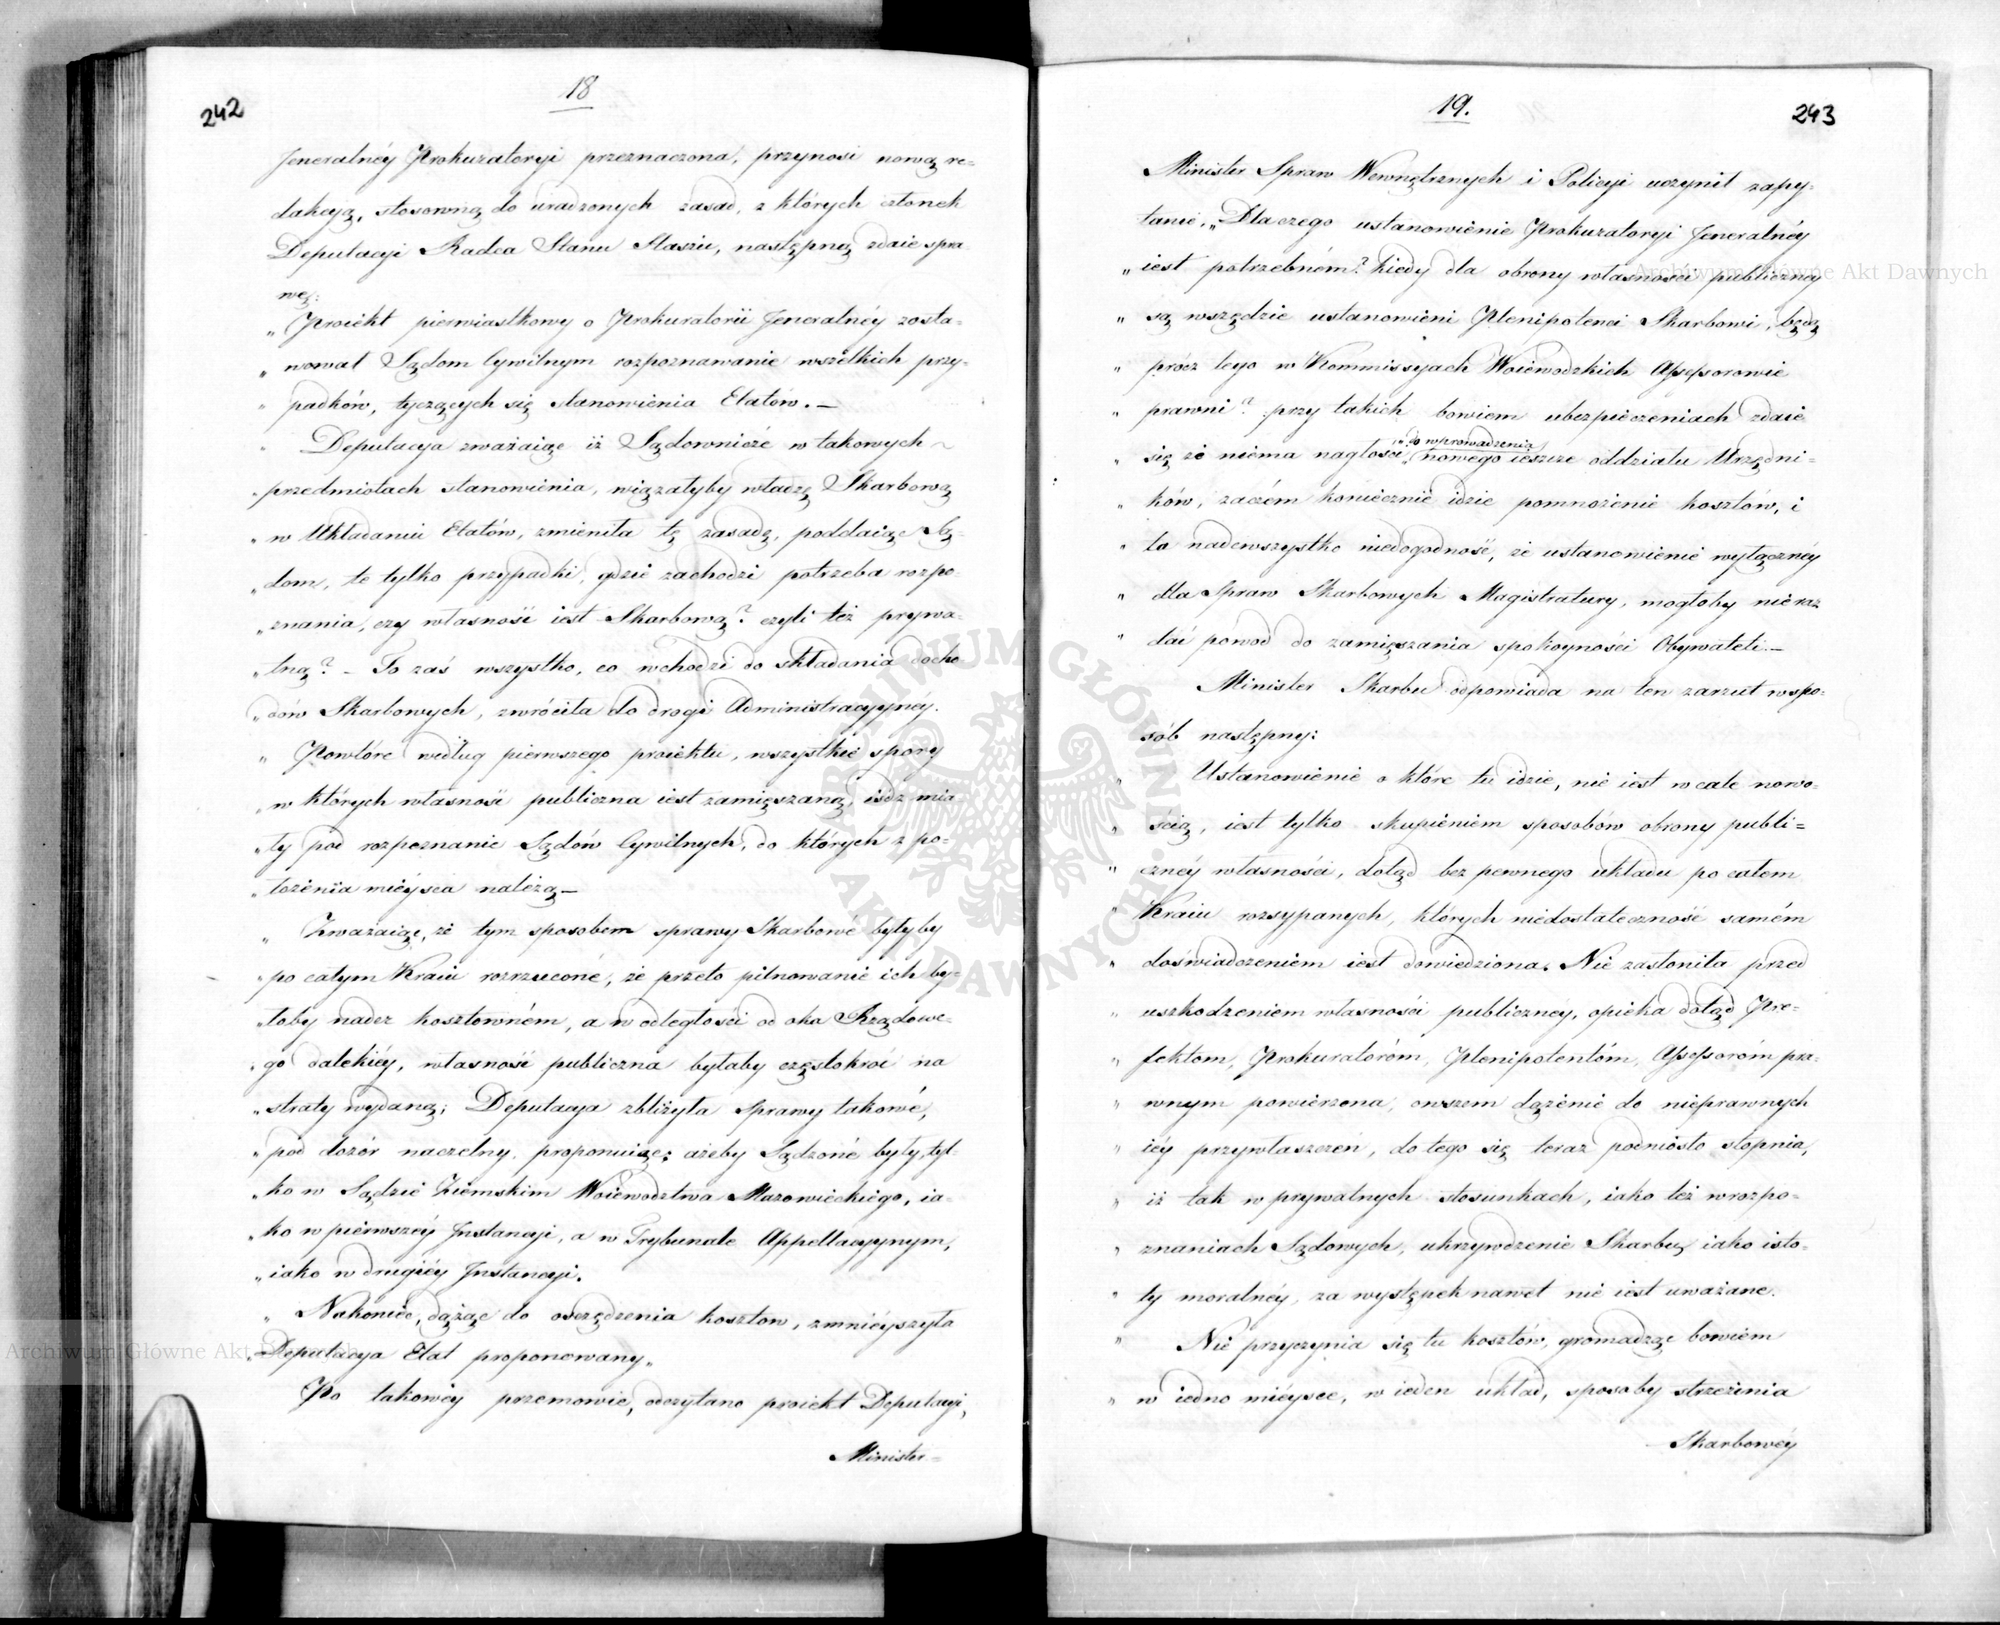 242
18
Jeneralnéy Prokuratoryi przeznaczona, przynosi nową re-
dakcyą, stosowną do uradzonych zasad, z których członek
Deputacyi Radca Stanu Staszic, następną zdaie spra-
wę:
„Proiekt pierwiastkowy o Prokuratorii Jeneralnéy zosta-
„wował Sądom Cywilnym rozpoznawanie wszelkich przy-
„padków, tyczących się stanowienia Etatów.—
„Deputacya zważaiąc iż Sądownicze w takowych
„przedmiotach stanowienia, wiązałyby władzę Skarbową
„w Układaniu Etatów, zmieniła tę zasadę, poddaiąc Są-
„dom, te tylko przypadki, gdzie zachodzi potrzeba rozpo-
„znania, czy własność iest Skarbową? czyli też prywa-
„tną? – To zaś wszystko, co wchodzi do składania docho-
„dów Skarbowych, zwróciła do drogi Administracyynéy.
„Powtóre według pierwszego proiektu, wszystkie spory
„w których własność publiczna iest zamięszaną, iśdź mia-
„ły pod rozpoznanie Sądów Cywilnych, do których z po-
„łożenia mieysca należą—
„Zważaiąc, że tym sposobem sprawy Skarbowé byłyby
„po całym Kraiu rozrzuconé, że przeto pilnowanie ich by-
„łoby nader kosztowném, a w odległości od oka Rządowe-
„go dalekiéy, własność publiczna byłaby częstokroć na
„straty wydaną; Deputacya zbliżyła Sprawy takowé,
„pod dozór naczelny, proponuiąc: ażeby Sądzoné były, tyl-
„ko w Sądzie Ziemskim Woiewództwa Mazowieckiégo, ia-
„ko w pierwszéy Instancyi, a w Trybunale Appellacyynym,
„iako w drugiéy Instancyi.
„Nakoniec, dążąc do oszczędzenia kosztów, zmniéyszyła
„Deputacya Etat proponowany„
Po takowéy przemowie, odczytano proiekt Deputacyi,
Minister
243
19.
Minister Spraw Wewnętrznych i Policyi uczynił zapy-
tanie, „Dlaczego ustanowienie Prokuratoryi Jeneralnéy
„iest potrzebném? kiedy dla obrony własności publicznéy
„są wszędzie ustanowieni Plenipotenci Skarbowi, będą
„prócz tego w Kommissyach Woiewodzkich Assessorowie
„prawni? przy takich bowiem ubezpieczeniach zdaie
„do wprowadzenia
„się że niema nagłości „nowego ieszcze oddziału Urzędni-
„ków, zaczém koniecznie idzie pomnożenie kosztów, i
„ta nadewszystko niedogodność, że ustanowienie wyłącznéy
„dla Spraw Skarbowych Magistratury, mogłoby nieraz
„dać powod do zamięszania spokoyności Obywateli.—
Minister Skarbu odpowiada na ten zarzut w spo-
sób następny:
„Ustanowienie o które tu idzie, nie iest wcale nowo-
„ścią, iest tylko skupieniem sposobów obrony publi=
„cznéy własności, dotąd bez pewnego układu po całem
„Kraiu rozsypanych, których niedostateczność samém
„doświadczeniem iest dowiedziona. Nie zasłoniła przed
„uszkodzeniem własności publicznéy, opieka dotąd Pre-
„fektom, Prokuratoróm, Plenipotentóm, Assessoróm pra-
„wnym powierzona, owszem dążenie do nieprawnych
„iéy przywłaszczeń, do tego się teraz podniosło stopnia,
„iż tak w prywatnych stosunkach, iako też w rozpo-
„znaniach Sądowych, ukrzywdzenie Skarbu, iako isto-
„ty moralnéy, za występek nawet nie iest uważane.
„Nie przyczynia się tu kosztów, gromadząc bowiem
„w iedno miéysce, w ieden układ, sposoby strzeżenia
Skarbowéy
Archiwum Główne Akt Dawnych
Archiwum Główne Akt Dawnych
ARCHIWUM GŁÓWNE AKT DAWNYCH